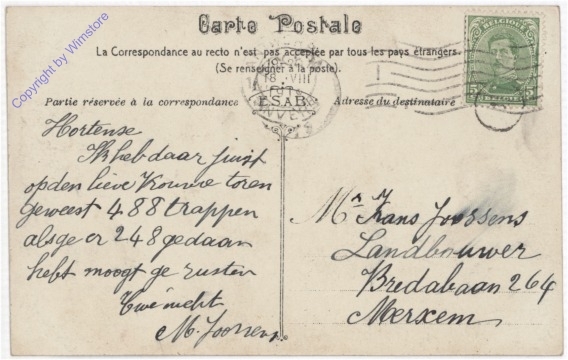 Carte Postale
La Correspondance au recto n'est pas acceptée par tous les pays étrangers.
(Se renseigner à la poste).
Copyright by Wimstore
18 VIII
ANTWERPEN
BELGIQUE
5 5
BELGIË
Partie réservée à la correspondance
Adresse du destinataire
Hortense
Ik heb daar juist
op den lieve Vrouwe toren
geweest 488 trappen
als ge er 248 gedaan
hebt moogt ge rusten
M. Joossens
Mr Frans Joossens
Landbouwer
Bredabaan 264
Merxem